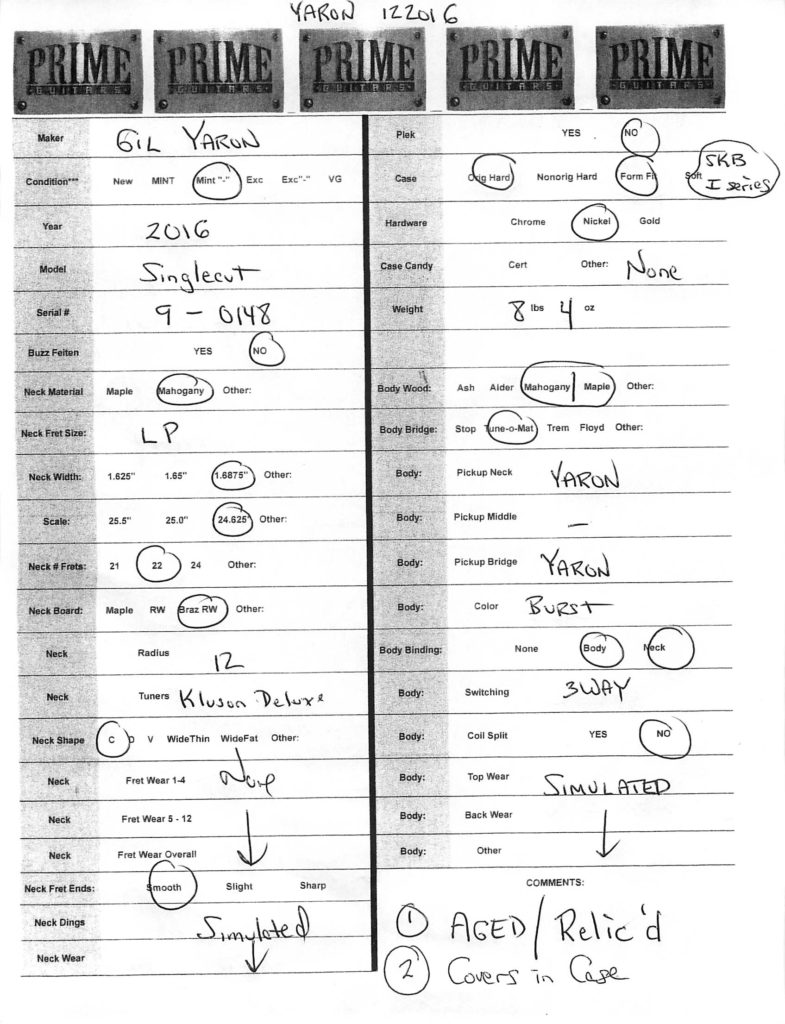 YARON 122016
PRIME GUITARS PRIME GUITARS PRIME GUITARS PRIME GUITARS PRIME GUITARS
Maker GIL YARON
Condition*** New MINT Mint "-" Exc Exc"-" VG
Year 2016
Model Singlecut
Serial # 9 - 0148
Buzz Feiten YES NO
Neck Material Maple Mahogany Other:
Neck Fret Size: LP
Neck Width: 1.625" 1.65" 1.6875" Other:
Scale: 25.5" 25.0" 24.625" Other:
Neck # Frets: 21 22 24 Other:
Neck Board: Maple RW Braz RW Other:
Neck Radius 12
Neck Tuners Kluson Deluxe
Neck Shape C D V WideThin WideFat Other:
Neck Fret Wear 1-4 None
Neck Fret Wear 5 - 12
Neck Fret Wear Overall
Neck Fret Ends: Smooth Slight Sharp
Neck Dings Simulated
Neck Wear
Plek YES NO
Case Orig Hard Nonorig Hard Form Fit Soft SKB I series
Hardware Chrome Nickel Gold
Case Candy Cert Other: None
Weight 8 lbs 4 oz
Body Wood: Ash Alder Mahogany Maple Other:
Body Bridge: Stop Tune-o-Mat Trem Floyd Other:
Body: Pickup Neck YARON
Body: Pickup Middle —
Body: Pickup Bridge YARON
Body: Color BURST
Body Binding: None Body Neck
Body: Switching 3WAY
Body: Coil Split YES NO
Body: Top Wear SIMULATED
Body: Back Wear
Body: Other
COMMENTS:
1 AGED / Relic'd
2 Covers in Case